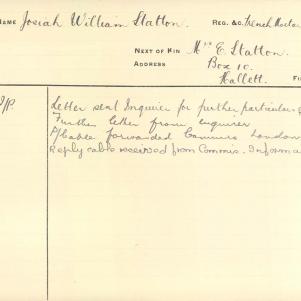 NAME Josiah William Statton. REG. &C. Trench Mortar
NEXT OF KIN Mrs E. Statton.
ADDRESS Box 10.
Hallett.
Letter sent Inquirer for further particulars
Further letter from enquirer
P/Cable forwarded Commrs London
Reply cable received from Commis. Informa